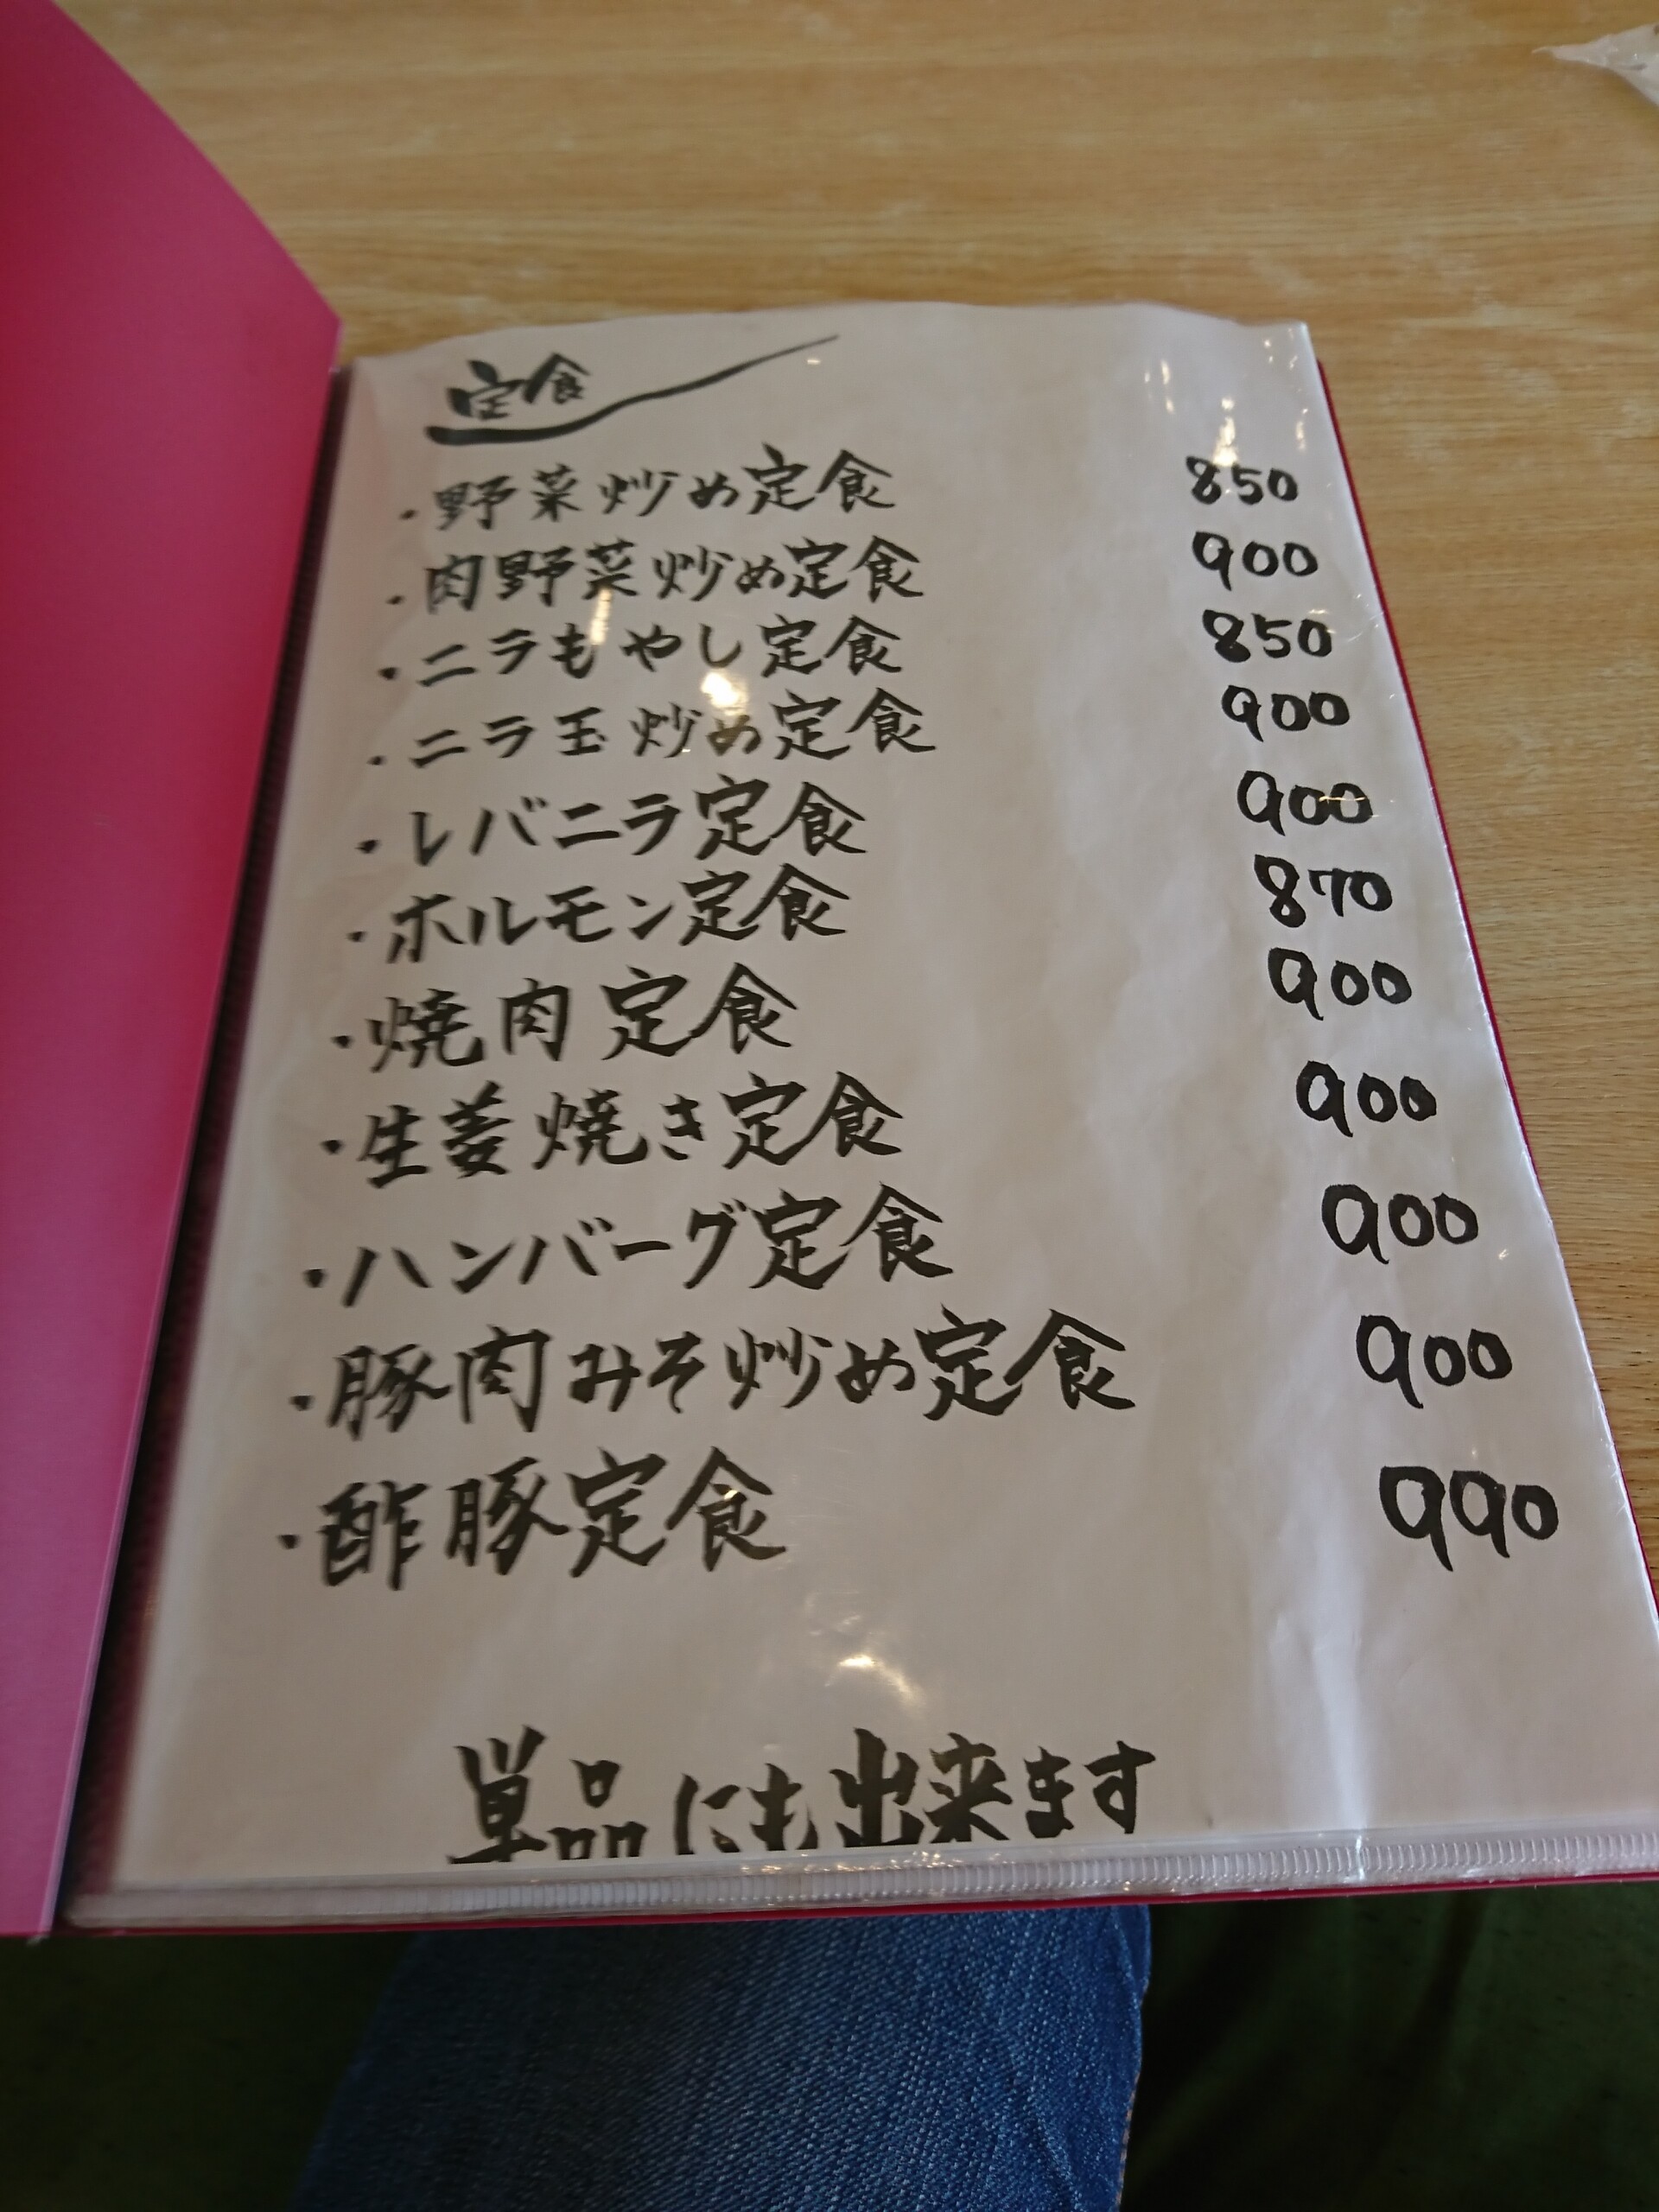 定食
・野菜炒め定食 850
・肉野菜炒め定食 900
・ニラもやし定食 850
・ニラ玉炒め定食 900
・レバニラ定食 900
・ホルモン定食 870
・焼肉定食 900
・生姜焼き定食 900
・ハンバーグ定食 900
・豚肉みそ炒め定食 900
・酢豚定食 990
単品にも出来ます